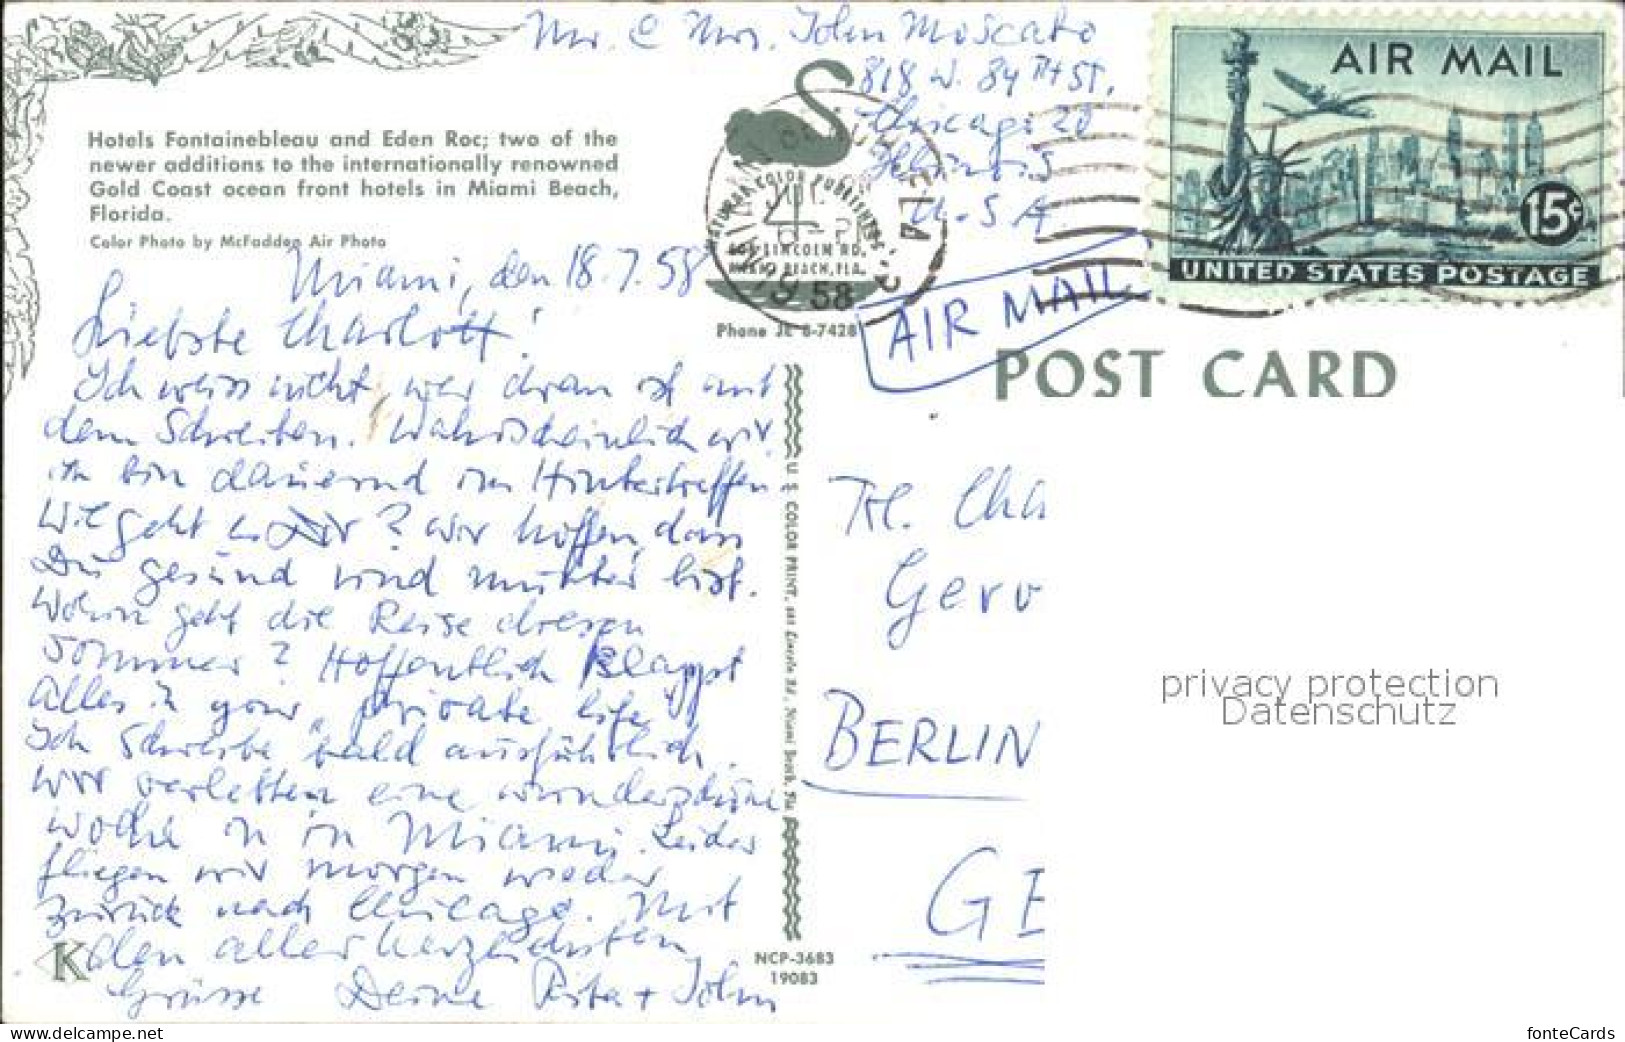 Mr. & Mrs. John Moscato
818 W. 84th ST.
Chicago 20
Illinois
U.S.A
AIR MAIL
15¢
UNITED STATES POSTAGE
Hotels Fontainebleau and Eden Roc; two of the
newer additions to the internationally renowned
Gold Coast ocean front hotels in Miami Beach,
Florida.
Color Photo by McFadden Air Photo
NATURAL COLOR PUBLISHERS
LINCOLN RD.
MIAMI BEACH, FLA.
58
Phone JE 8-7428
AIR MAIL
POST CARD
Miami, den 18.7.58
Liebste Charlott!
Ich weiss nicht, wer dran ist mit
dem Schreiben. Wahrscheinlich wir
ich bin dauernd im Hintertreffen.
Wie geht es Dir? Wir hoffen, dass
Du gesund und munter bist.
Wohin geht die Reise diesen
Sommer? Hoffentlich klappt
alles in your "private life"
Ich schreibe bald ausführlich.
Wir verlebten eine wunderschöne
Woche in Miami. Leider
fliegen wir morgen wieder
zurück nach Chicago. Mit
allen aller herzlichsten
Grüsse Deine Rita + John
K
U S COLOR PRINT, Lincoln Rd., Miami Beach, Fla
NCP-3683
19083
Frl. Cha
Gerv
BERLIN
GE
privacy protection
Datenschutz
www.delcampe.net
fonteCards